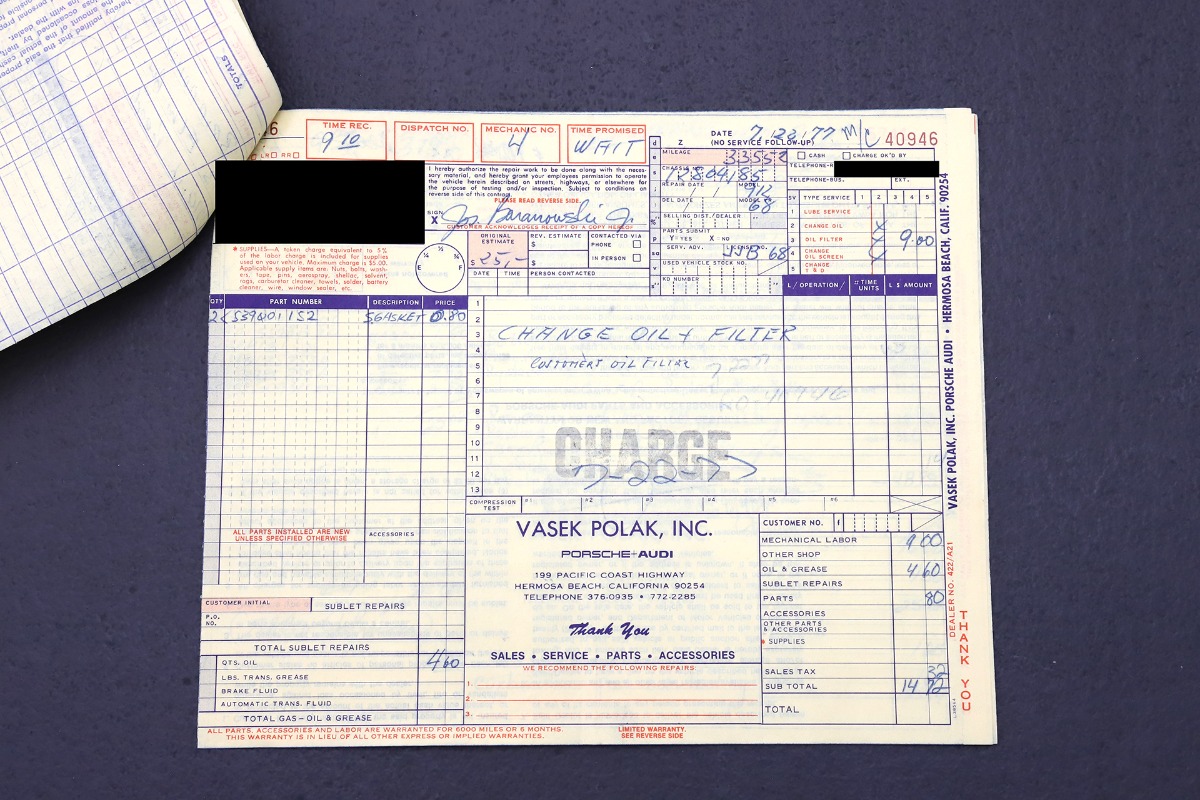 TOTALS
6
TIME REC.
9 10
DISPATCH NO.
MECHANIC NO.
4
TIME PROMISED
WAIT
DATE 7 22 77 M/C 40946
(NO SERVICE FOLLOW-UP)
LR RR
I hereby authorize the repair work to be done along with the neces-
sary material, and hereby grant your employees permission to operate
the vehicle herein described on streets, highways, or elsewhere for
the purpose of testing and/or inspection. Subject to conditions on
reverse side of this contract.
PLEASE READ REVERSE SIDE
SIGN
X Jos. Baranowski Jr.
CUSTOMER ACKNOWLEDGES RECEIPT OF A COPY HEREOF
MILEAGE
CHASSIS NO.
12804185
REPAIR DATE
912
DEL DATE
68
SELLING DIST./DEALER
PARTS SUBMIT
Y-YES X-NO
SERV. ADV.
LICENSE NO.
USED VEHICLE STOCK NO.
KD NUMBER
CASH CHARGE OK'D BY
TELEPHONE-BUS. EXT.
SV TYPE SERVICE 1 2 3 4 5
1 LUBE SERVICE
2 CHANGE OIL
3 OIL FILTER 9.00
4 CHANGE OIL SCREEN
5 CHANGE T & D
* SUPPLIES—A token charge equivalent to 5%
of the labor charge is included for supplies
used on your vehicle. Maximum charge is $5.00.
Applicable supply items are: Nuts, bolts, wash-
ers, tape, pins, aerospray, shellac, solvent,
rags, carburetor cleaner, towels, solder, battery
cleaner, wire, window sealer, etc.
E F
¼ ½ ¾
ORIGINAL ESTIMATE
$ 25.-
REV. ESTIMATE
$
$
CONTACTED VIA
PHONE
IN PERSON
DATE TIME PERSON CONTACTED
QTY PART NUMBER DESCRIPTION PRICE
L/OPERATION/ TIME UNITS L $ AMOUNT
GASKET 0.80
1
2
3 CHANGE OIL + FILTER
4
5 CUSTOMERS OIL FILTER
6
7
8
9
10
11 CHARGE
12 7-22-77
13
COMPRESSION TEST #1 #2 #3 #4 #5 #6
ALL PARTS INSTALLED ARE NEW
UNLESS SPECIFIED OTHERWISE
ACCESSORIES
VASEK POLAK, INC.
PORSCHE+AUDI
199 PACIFIC COAST HIGHWAY
HERMOSA BEACH, CALIFORNIA 90254
TELEPHONE 376-0935 • 772-2285
Thank You
SALES • SERVICE • PARTS • ACCESSORIES
WE RECOMMEND THE FOLLOWING REPAIRS:
1.
2.
3.
CUSTOMER NO.
MECHANICAL LABOR 9 00
OTHER SHOP
OIL & GREASE 4 60
SUBLET REPAIRS
PARTS 80
ACCESSORIES
OTHER PARTS & ACCESSORIES
* SUPPLIES
SALES TAX 32
SUB TOTAL 14 72
TOTAL
CUSTOMER INITIAL
SUBLET REPAIRS
P.O. NO.
TOTAL SUBLET REPAIRS
QTS. OIL 4 60
LBS. TRANS. GREASE
BRAKE FLUID
AUTOMATIC TRANS. FLUID
TOTAL GAS-OIL & GREASE
ALL PARTS, ACCESSORIES AND LABOR ARE WARRANTED FOR 6000 MILES OR 6 MONTHS.
THIS WARRANTY IS IN LIEU OF ALL OTHER EXPRESS OR IMPLIED WARRANTIES.
LIMITED WARRANTY.
SEE REVERSE SIDE
VASEK POLAK, INC. PORSCHE AUDI • HERMOSA BEACH, CALIF. 90254
DEALER NO. 422/A21
THANK YOU